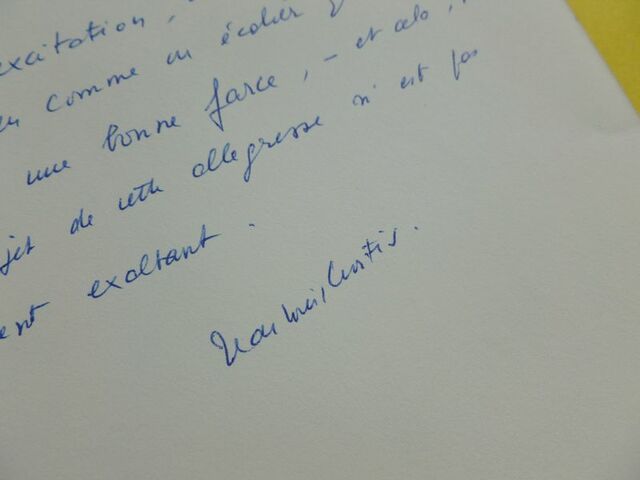 excitation,
comme un écolier
une bonne farce, – et cela,
jet de cette allégresse n'est pas
ent exaltant.
Jean-Louis Curtis.